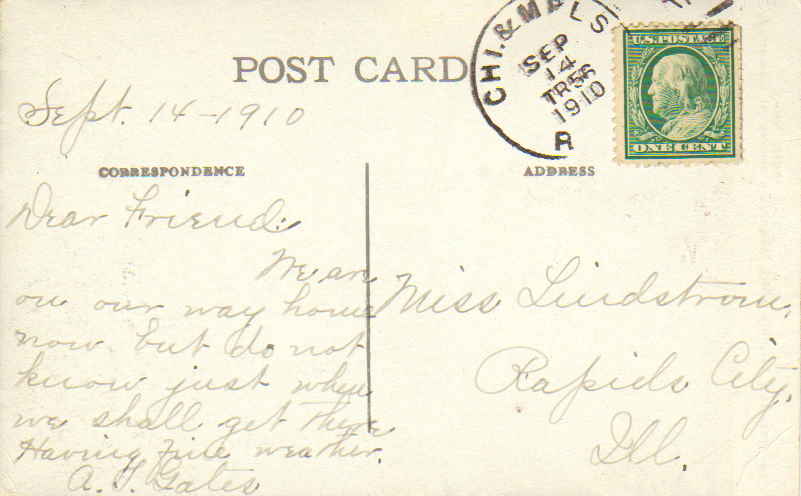 POST CARD
CHI. & M
LS
SEP
14
TR 56
1910
R
U.S. POSTAGE
ONE CENT
Sept. 14-1910
CORRESPONDENCE
Dear Friend:
We are
on our way home
now but do not
know just when
we shall get there
Having fine weather.
A. T. Gates
ADDRESS
Miss Lindstrom,
Rapids City,
Ill.